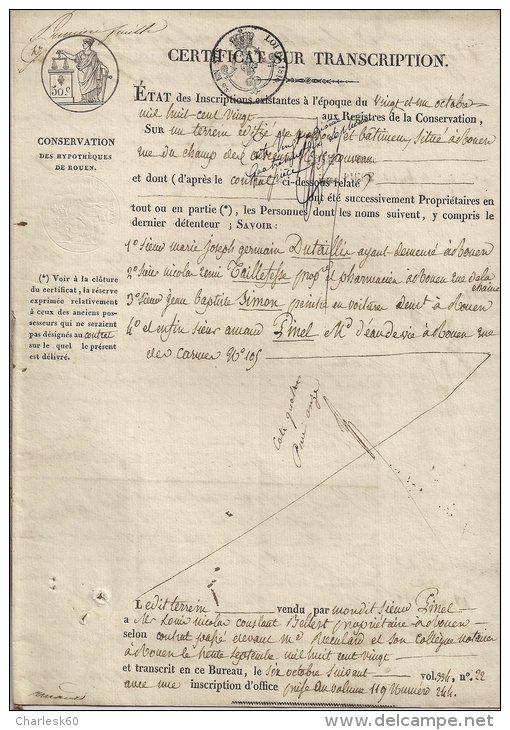 Premier feuille
LOI DE 1816
50 c
CERTIFICAT SUR TRANSCRIPTION.
ÉTAT des Inscriptions existantes à l'époque du vingt et un octobre
mil huit cent vingt aux Registres de la Conservation,
CONSERVATION
DES HYPOTHÈQUES
DE ROUEN.
SUR un terrein édifié de et bâtiment situé à Rouen
rue du champ des
et dont (d'après le contrat ci-dessous relaté)
ont été successivement Propriétaires en
tout ou en partie (*), les Personnes dont les noms suivent, y compris le
dernier détenteur; SAVOIR:
1º sieur marie joseph germain Dutaillis ayant demeuré à Rouen
2º sieur nicolas remi Taillefesse prop.re pharmacien à Rouen rue de la
chaine
3º sieur jean baptiste Simon peintre en voiture demt à Rouen
4º et enfin sieur amand Pinel Md d'eau de vie à Rouen rue
des carmes Nº 105
(*) Voir à la clôture
du certificat, la réserve
exprimée relativement
à ceux des anciens possesseurs
qui ne seraient
pas désignés au contrat
sur le quel le présent
est délivré.
Cote quatre
Piece onze
Ledit terrein vendu par mondit sieur Pinel
a Mr Louis nicolas constant Bellest propriétaire à Rouen
selon contrat passé devant Me et son collègue notaires
à Rouen le trente septembre mil huit cent vingt
et transcrit en ce Bureau, le six octobre suivant vol. 334, nº. 22
avec une inscription d'office prise au volume 119 Numéro 244.
Charlesk60
www.delcampe.net